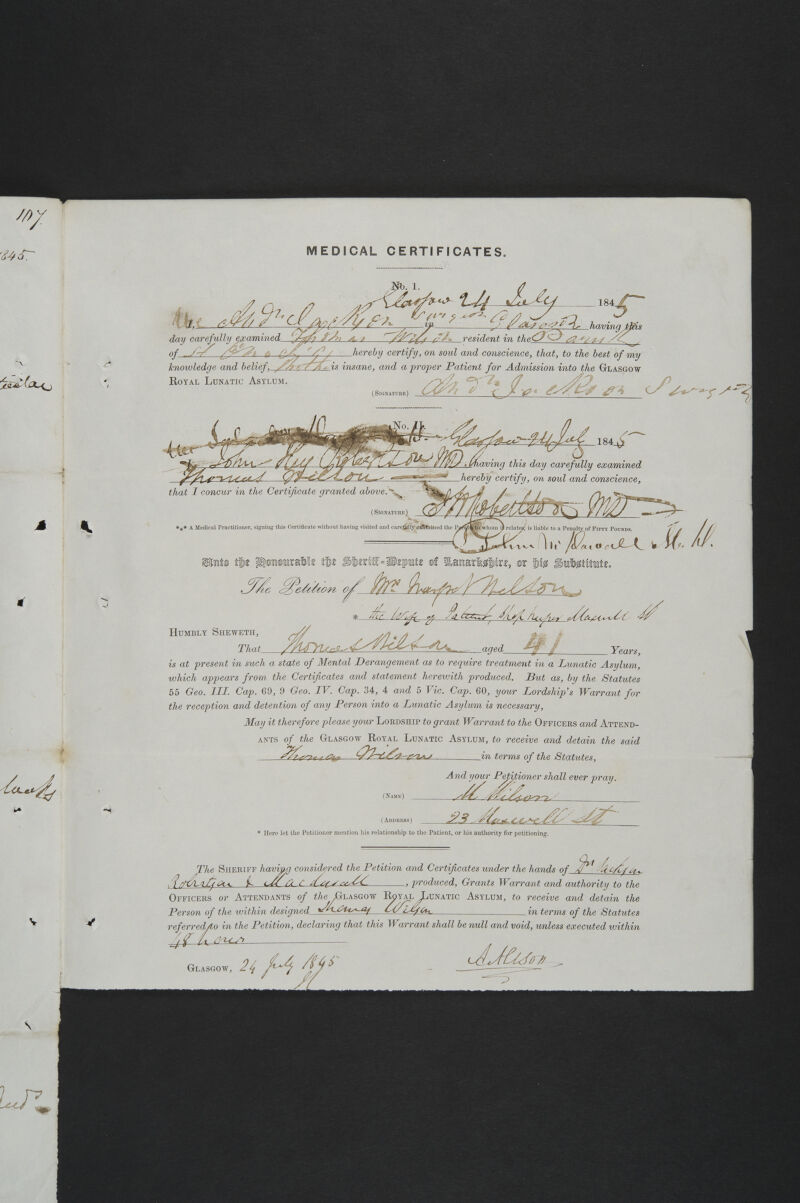 107
1845.
MEDICAL CERTIFICATES.
No. 1.
Glasgow 24 July 1845
I, Andw Jackson Surgeon in Glasgow having this
day carefully examined Thomas Wilson resident in the Parish
of St hereby certify, on soul and conscience, that, to the best of my
knowledge and belief, he is insane, and a proper Patient for Admission into the GLASGOW
ROYAL LUNATIC ASYLUM.
(SIGNATURE) Andw Jackson Surgeon
No. II.
Glasgow 24 July 1845
John Robertson MD. having this day carefully examined
Thomas Wilson hereby certify, on soul and conscience,
that I concur in the Certificate granted above.
(SIGNATURE) Robertson MD
*** A Medical Practitioner, signing this Certificate without having visited and carefully examined the Person to whom it relates, is liable to a Penalty of FIFTY POUNDS.
John M. D.
Unto the Honourable the Sheriff-Depute of Lanarkshire, or his Substitute.
The Petition of Mrs Margt Wilson
* the Wife of Patient, Maxwell St
HUMBLY SHEWETH,
That Thomas Wilson aged 41 Years,
is at present in such a state of Mental Derangement as to require treatment in a Lunatic Asylum,
which appears from the Certificates and statement herewith produced. But as, by the Statutes
55 Geo. III. Cap. 69, 9 Geo. IV. Cap. 34, 4 and 5 Vic. Cap. 60, your Lordship's Warrant for
the reception and detention of any Person into a Lunatic Asylum is necessary,
May it therefore please your LORDSHIP to grant Warrant to the OFFICERS and ATTEND-
ANTS of the GLASGOW ROYAL LUNATIC ASYLUM, to receive and detain the said
Thomas Wilson in terms of the Statutes,
And your Petitioner shall ever pray.
(NAME) M Wilson
(ADDRESS) 23 Maxwell St
* Here let the Petitioner mention his relationship to the Patient, or his authority for petitioning.
The SHERIFF having considered the Petition and Certificates under the hands of Drs Jackson
Robertson & Macdowall, produced, Grants Warrant and authority to the
OFFICERS or ATTENDANTS of the GLASGOW ROYAL LUNATIC ASYLUM, to receive and detain the
Person of the within designed Thomas Wilson in terms of the Statutes
referred to in the Petition, declaring that this Warrant shall be null and void, unless executed within
48 hours
GLASGOW, 24 July 1845
A Alison